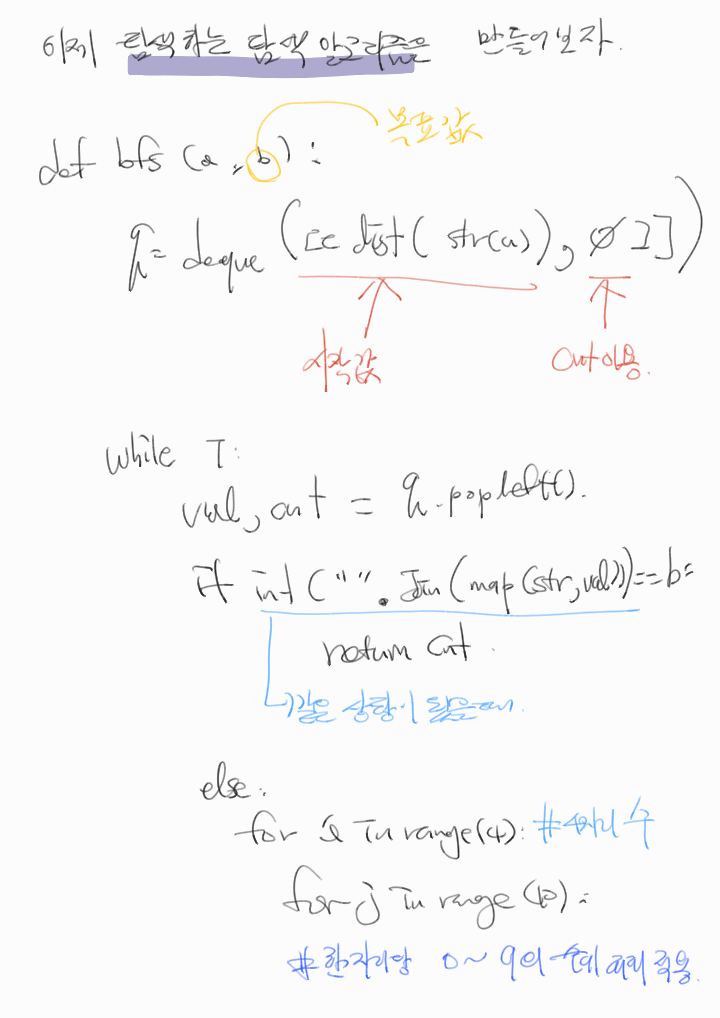 이제 탐색하는 탐색 알고리즘을 만들어보자.
목표값
def bfs (a, b) :
q = deque ([[ list( str(a)), 0 ]])
시작값 cnt이용.
while T:
val, cnt = q.popleft().
if int ("".join(map(str,val)))==b:
return cnt.
같은 상황이 됐을때.
else:
for i in range(4): #4자리 수
for j in range(10):
#한자리당 0~9의 숫자 적용.